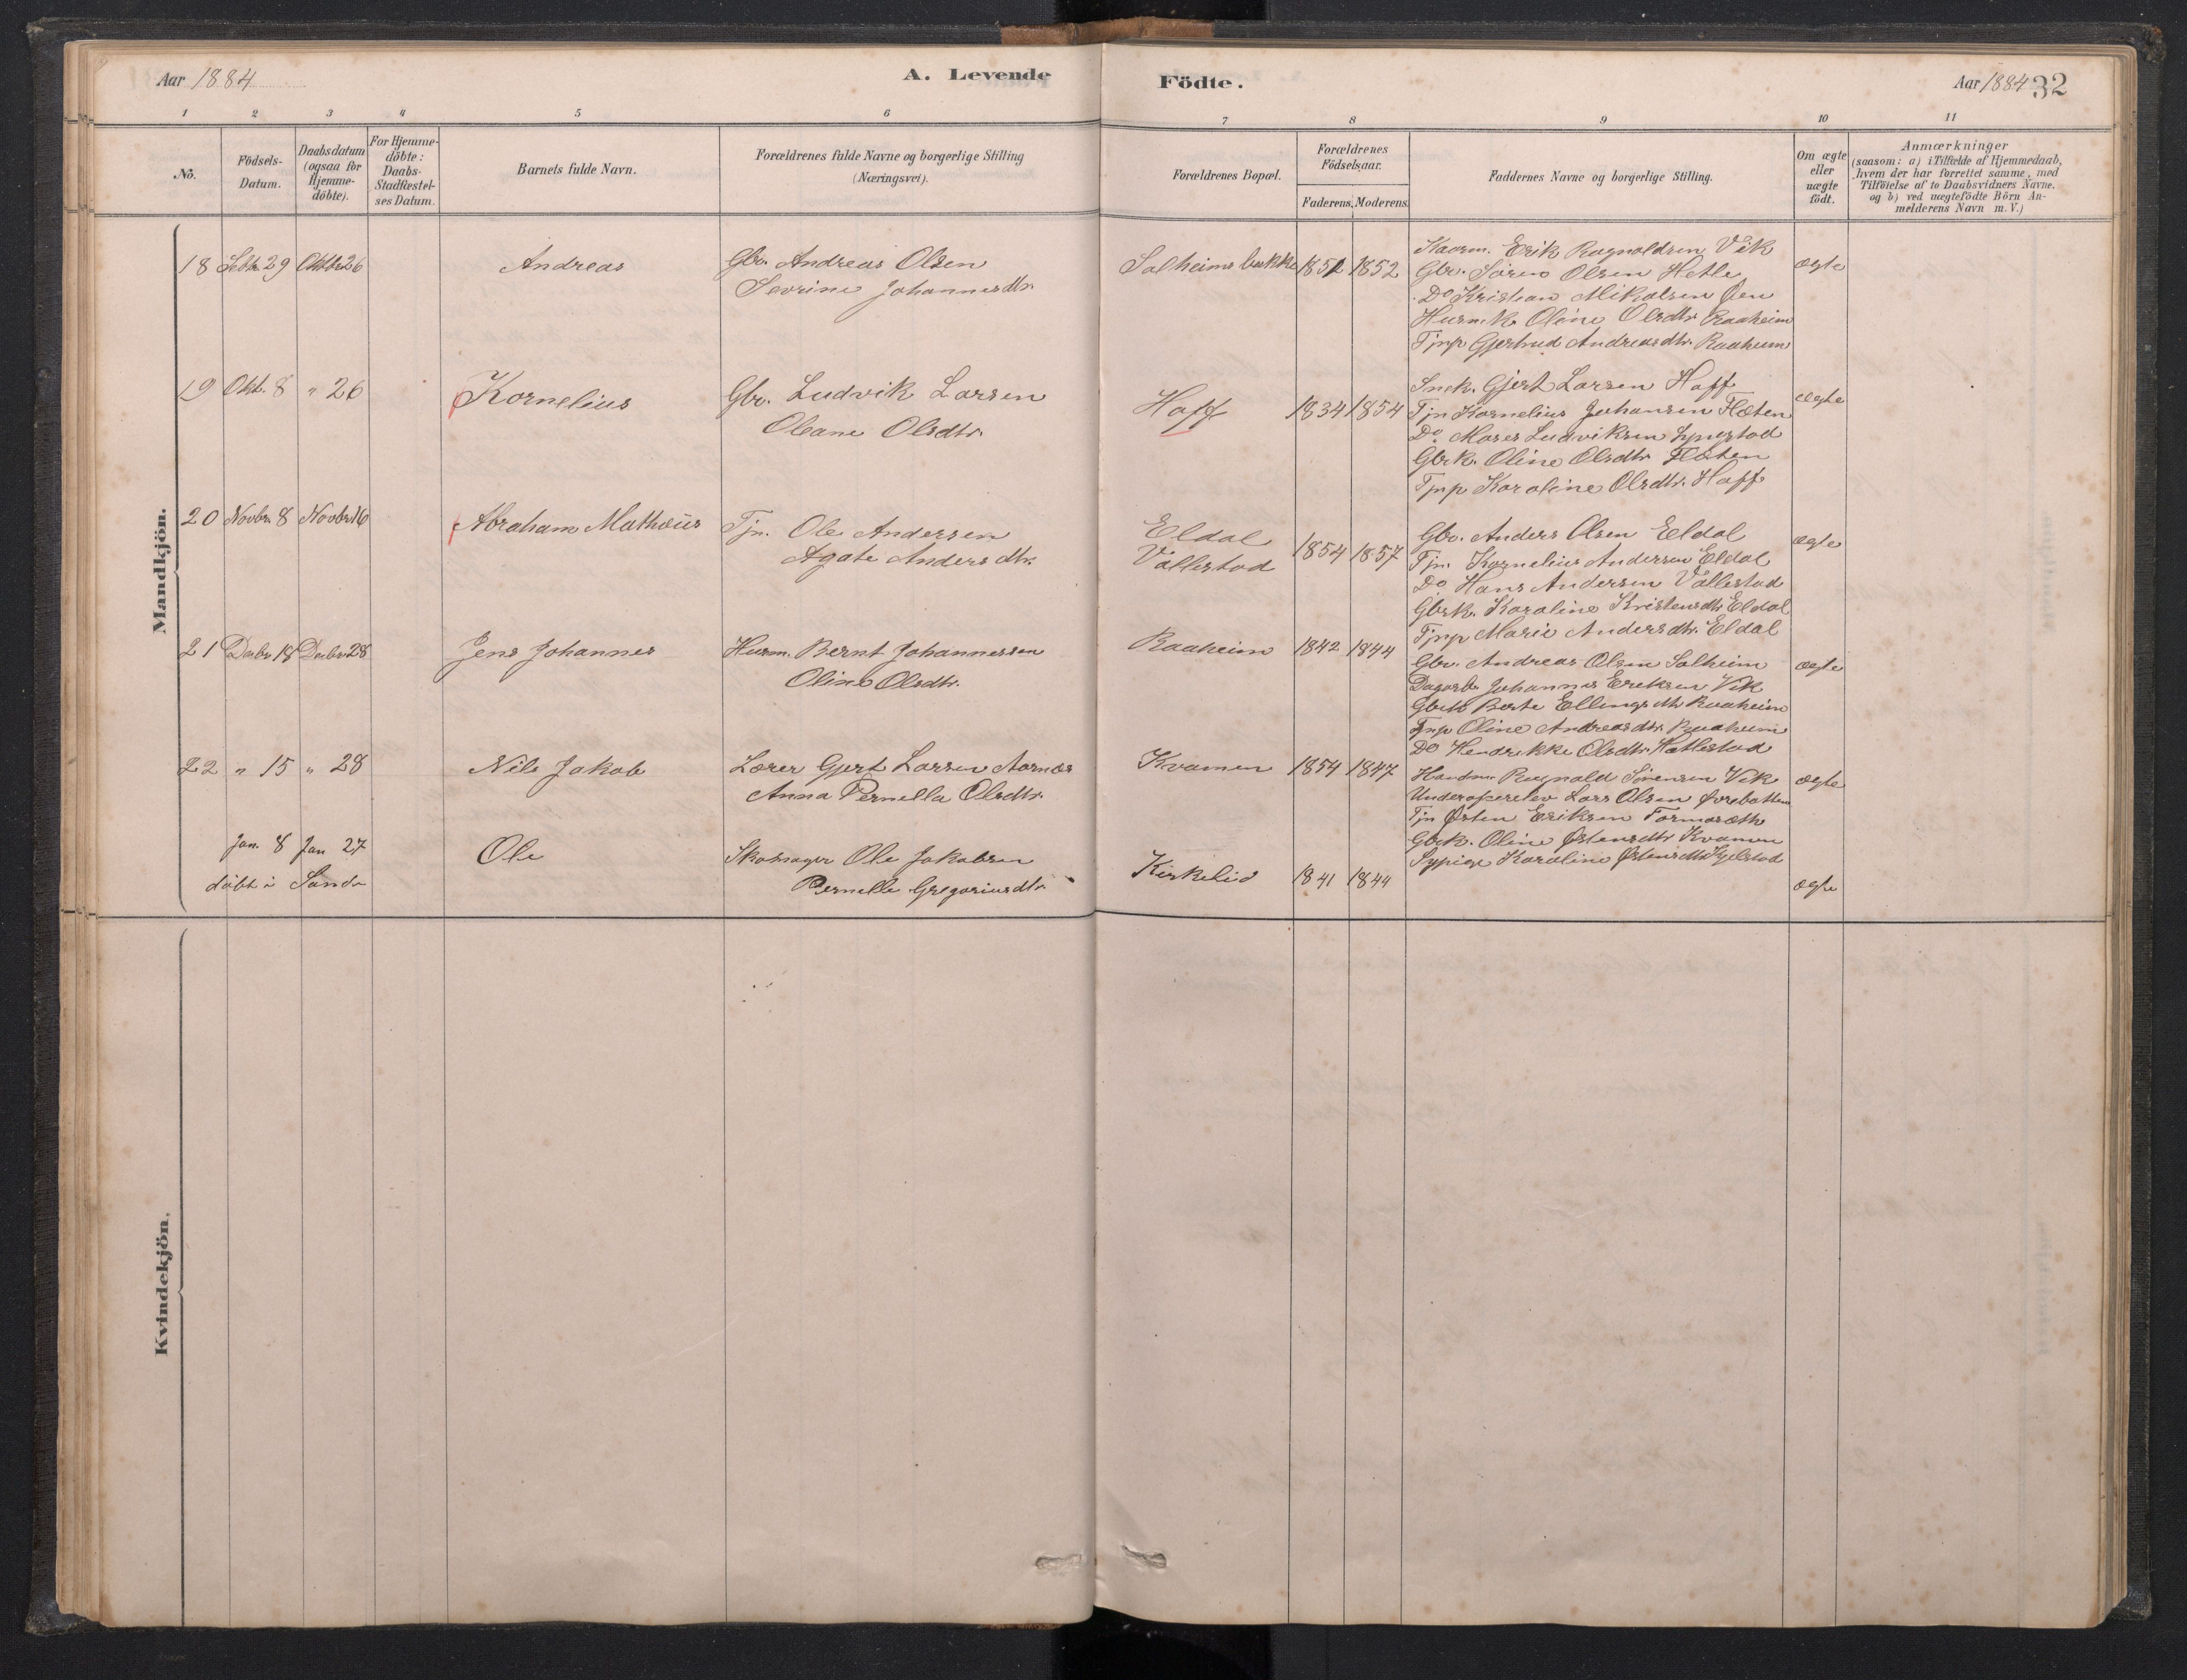 Aar 1884
A. Levende
Födte.
Aar 1884 32
1 2 3 4 5 6 7 8 9 10 11
No.
Födsels-
Datum.
Daabsdatum
(ogsaa for
Hjemme-
döbte).
For Hjemme-
döbte:
Daabs-
Stadfæstel-
ses Datum.
Barnets fulde Navn.
Forældrenes fulde Navne og borgerlige Stilling
(Næringsvei).
Forældrenes Bopæl.
Forældrenes
Födselsaar.
Faderens. Moderens.
Faddernes Navne og borgerlige Stilling.
Om ægte
eller
uægte
födt.
Anmærkninger
(saasom: a) i Tilfælde af Hjemmedaab,
hvem der har forrettet samme, med
Tilföielse af to Daabsvidners Navne,
og b) ved uægtefödte Börn An-
melderens Navn m. V.)
Mandkjön.
18 Septbr 29 Oktbr 26
Andreas
Gbr. Andreas Olsen
Sevrine Johannesdtr.
Solheimsbakke 1852 1852
Kaarm. Erik Ragnoldsen Vik
Gbr. Søren Olsen Hetle
Do Kristian Mikalsen Øen
Husmk. Oline Olsdtr. Raaheim
Tjnp Gjertrud Andreasdtr. Raaheim
ægte
19 Okt. 8 " 26
Kornelius
Gbr. Ludvik Larsen
Oleane Olsdtr.
Hoff 1834 1854
Snek. Gjert Larsen Hoff
Tjn Kornelius Johansen Flæten
Do. Moses Ludviksen Lyngstad
Gbrk. Oline Olsdtr. Flæten
Tjnp Karoline Olsdtr. Hoff
ægte
20 Novbr 8 Novbr 16
Abraham Mathæus
Tjn. Ole Andersen
Agate Andersdtr.
Eldal
Vallestad
1854 1857
Gbr. Anders Olsen Eldal
Tjn. Kornelius Andersen Eldal
Do Hans Andersen Vallestad
Gbrk. Karoline Kristensdtr Eldal
Tjnp Marie Andersdtr. Eldal
ægte
21 Decbr 18 Decbr 28
Jens Johannes
Husm. Bernt Johannessen
Oline Olsdtr.
Raaheim 1842 1844
Gbr. Andreas Olsen Solheim
Dagarb. Johannes Eriksen Vik
Gbrk Berte Ellingsdtr Raaheim
Tjnp Oline Andreasdtr. Raaheim
Do Hendrikke Olsdtr. Hatlestad
ægte
22 " 15 " 28
Nils Jakob
Lærer Gjert Larsen Aarnæs
Anna Pernella Olsdtr.
Kvamen 1854 1847
Handm. Ragnald Sørensen Vik
Lars Olsen Øvrebotten
Tjn Østen Eriksen
Gbrk. Oline Østensdtr. Kvamen
Sypige Karoline Østensdtr
ægte
Jan. 8 Jan 27
døbt i Sande
Ole
Skomager Ole Jakobsen
Pernelle Gregoriusdtr
Kirkelid 1841 1844
ægte
Kvindekjön.